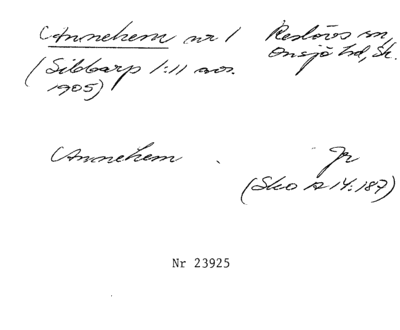 Annehem nr 1 Reslövs sn,
Onsjö hd, Sk.
(Sibbarp 1:11 avs.
1905)
Annehem Jr
(Sko A 14:187)
Nr 23925